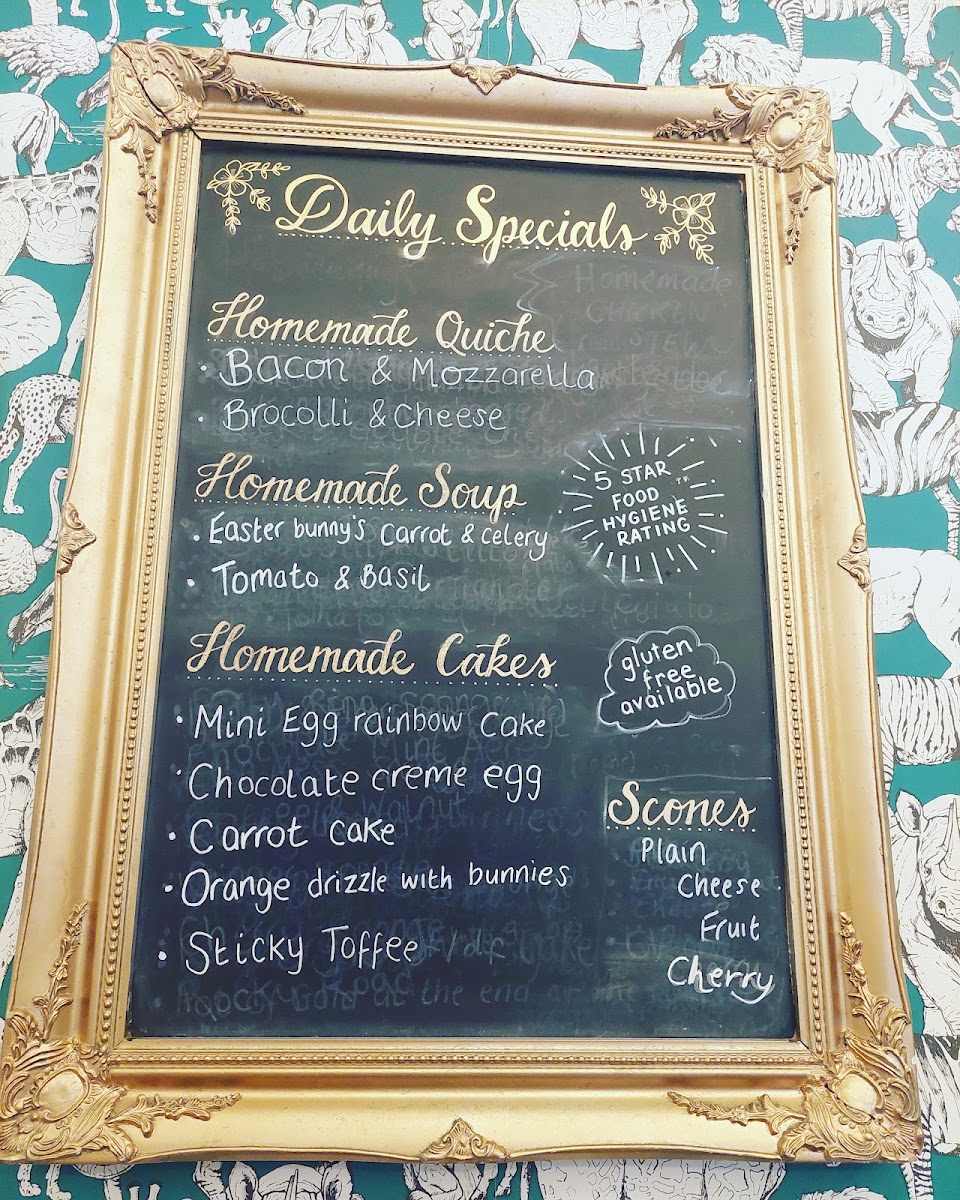 Daily Specials
Homemade Quiche
• Bacon & Mozzarella
• Brocolli & Cheese
5 STAR
FOOD
HYGIENE
RATING
Homemade Soup
• Easter bunny's Carrot & celery
• Tomato & Basil
gluten
free
available
Homemade Cakes
• Mini Egg rainbow Cake
• Chocolate creme egg
• Carrot Cake
• Orange drizzle with bunnies
• Sticky Toffee
Scones
Plain
Cheese
Fruit
Cherry